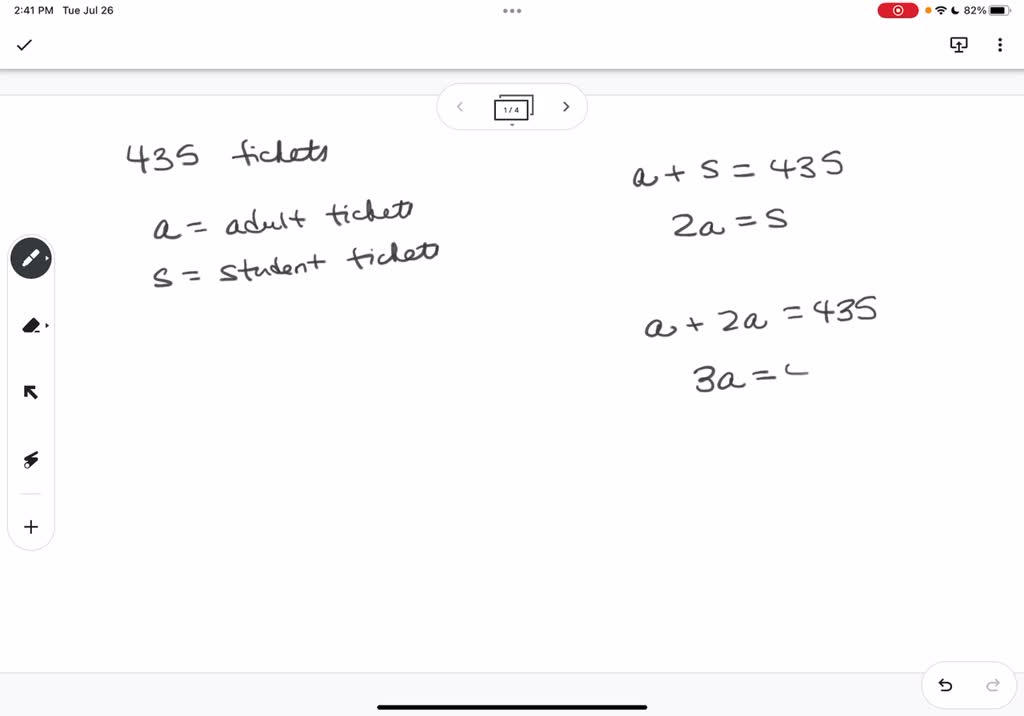 2:41 PM Tue Jul 26
82%
1 / 4
435 tickets
a = adult tickets
s = student tickets
a + s = 435
2a = s
a + 2a = 435
3a =